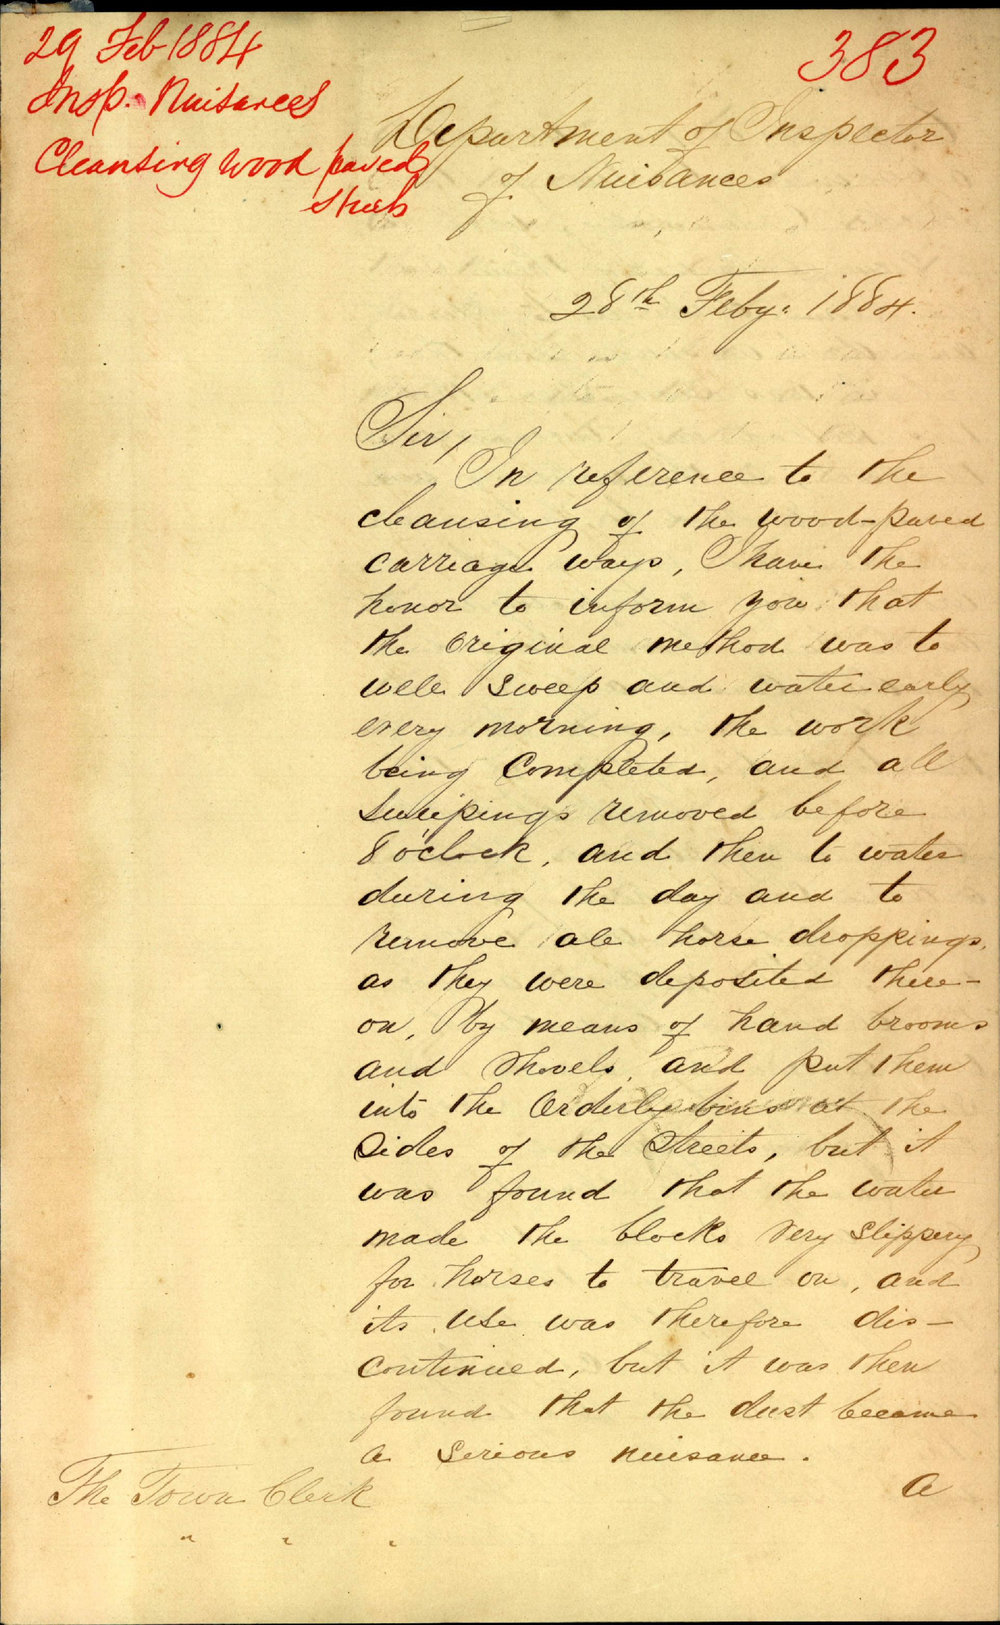 29 Feb 1884
Insp. Nuisances
Cleansing wood paved
streets
383
Department of Inspector
of Nuisances
28th Feby. 1884.
Sir,
In reference to the
cleansing of the wood-paved
carriage ways, I have the
honor to inform you that
the original method was to
well sweep and water early
every morning, the work
being completed, and all
sweepings removed before
8 o'clock, and then to water
during the day and to
remove all horse droppings,
as they were deposited there-
on, by means of hand brooms
and shovels, and put them
into the Orderly bins at the
sides of the streets, but it
was found that the water
made the blocks very slippery
for horses to travel on, and
its use was therefore dis-
continued, but it was then
found that the dust became
a serious nuisance.
a
The Town Clerk
" " "